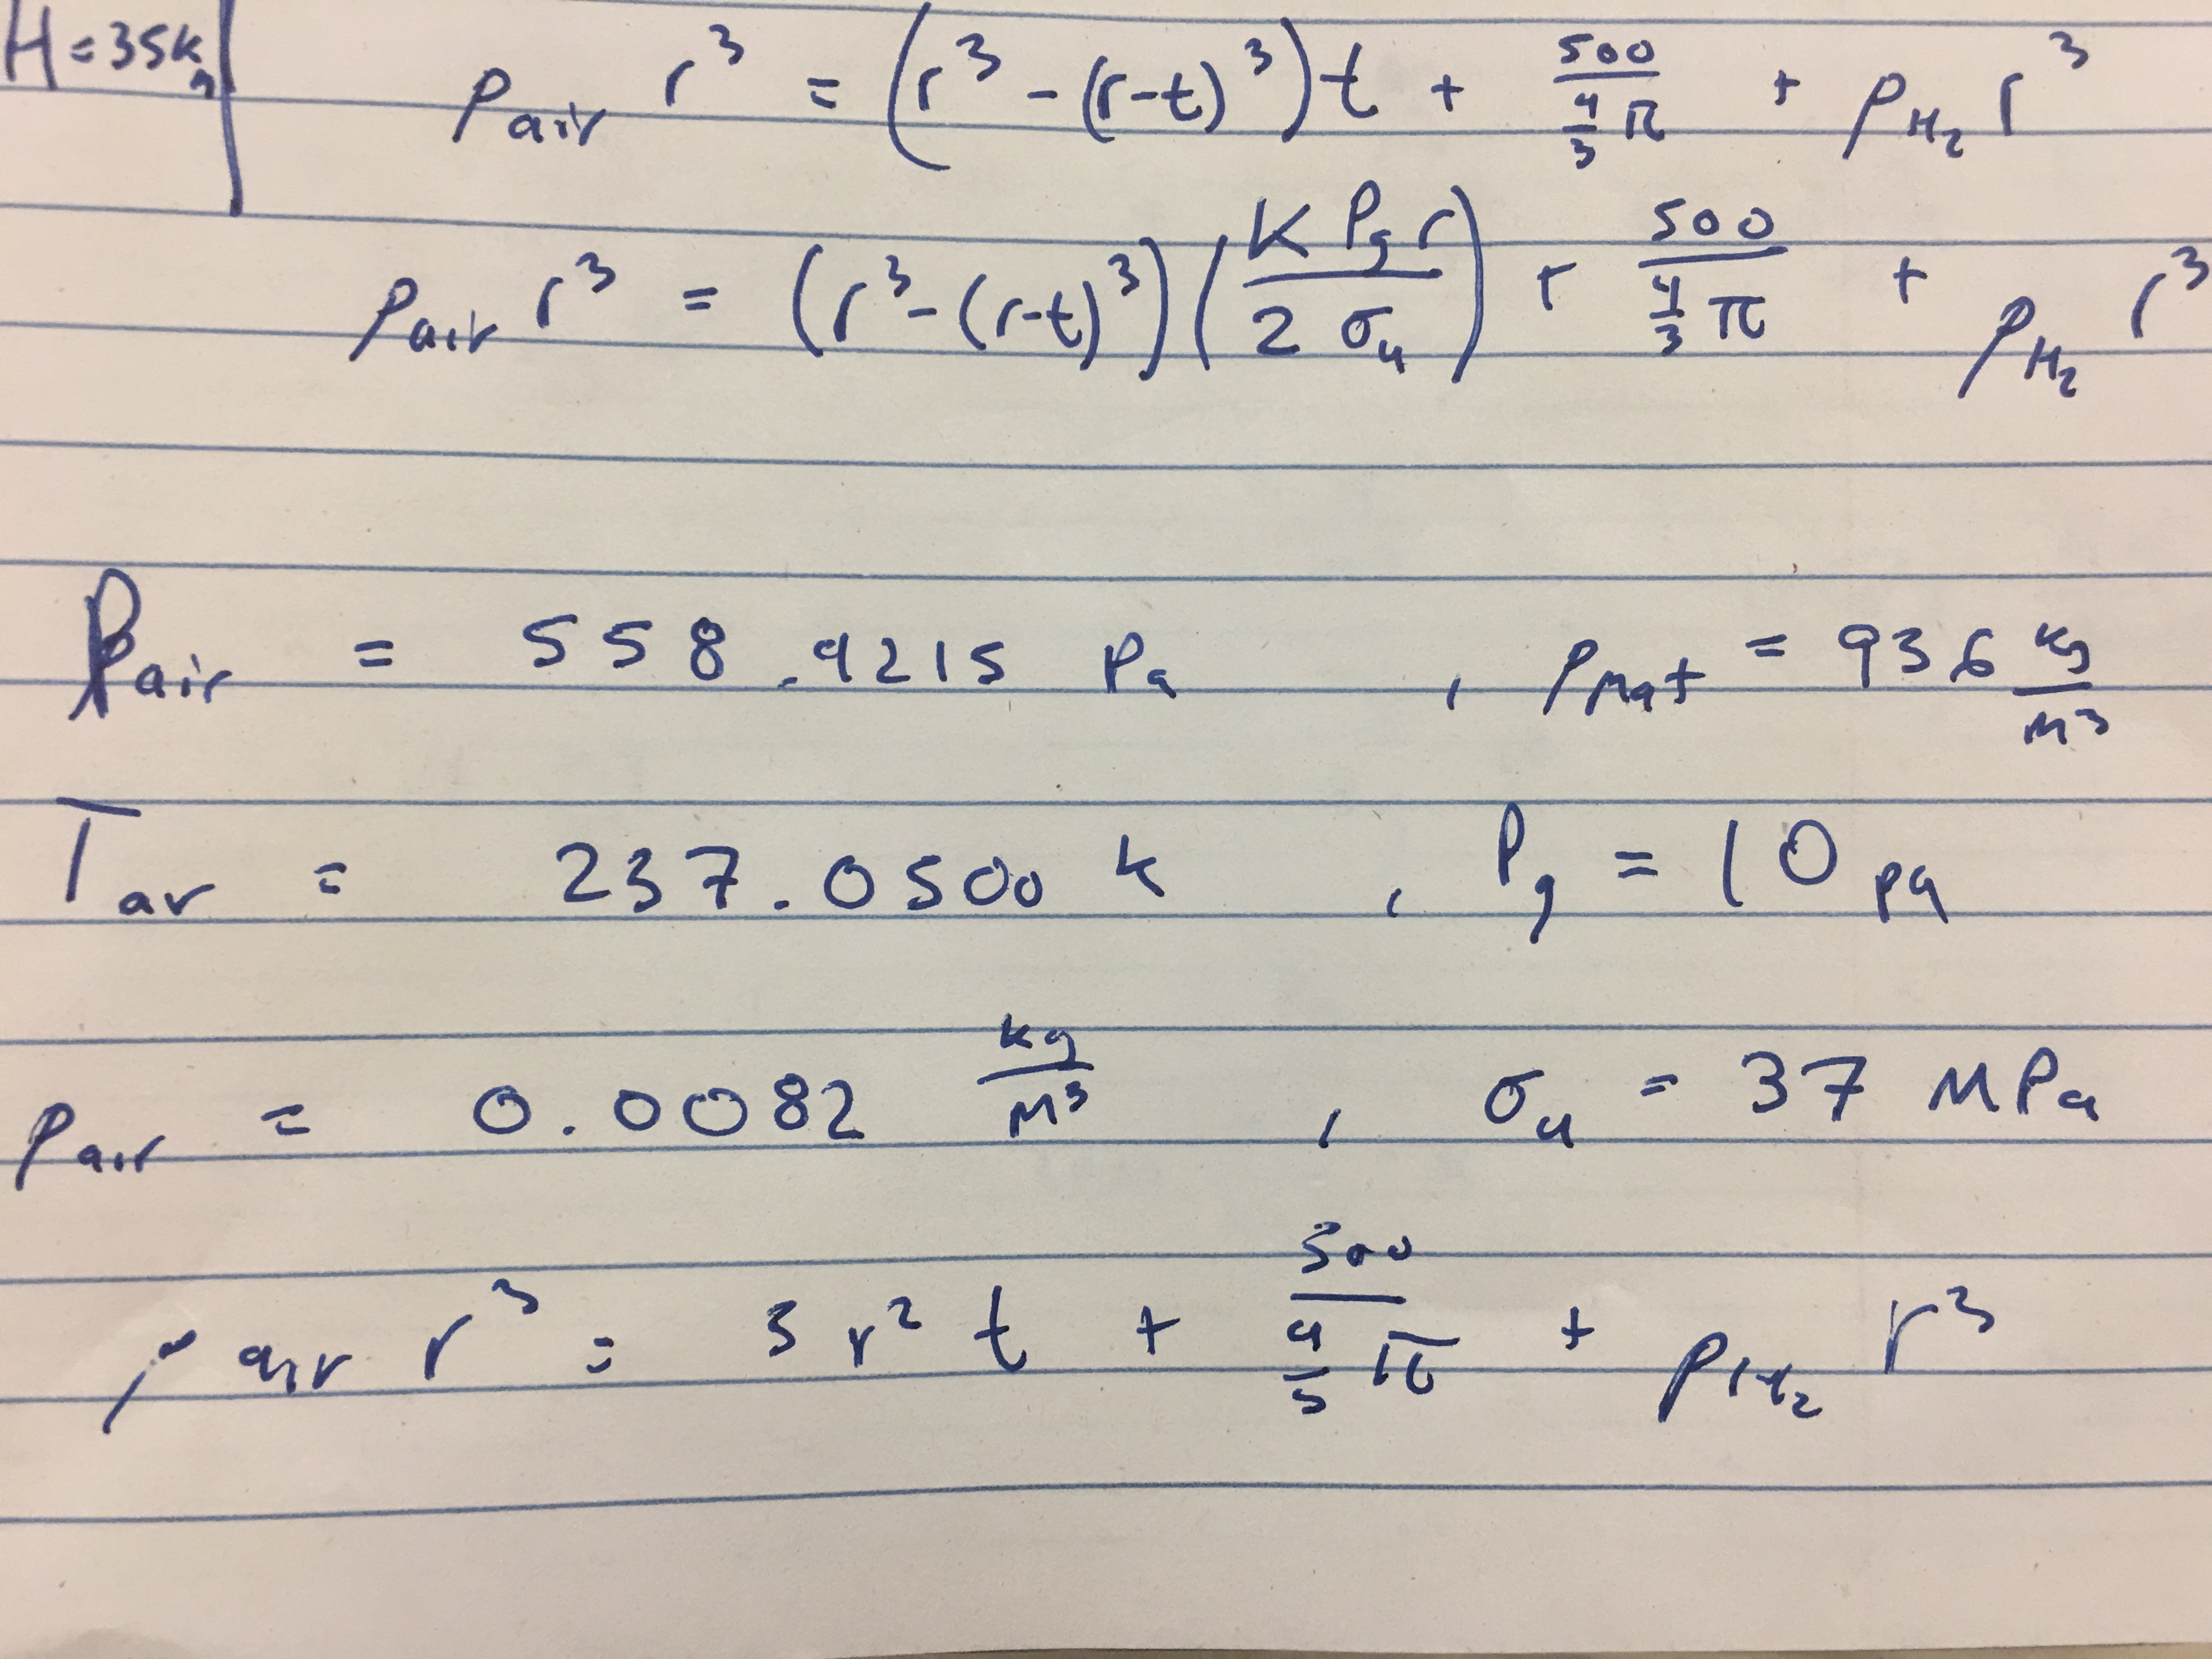 H = 35k
ρair r³ = (r³ - (r-t)³) t + 500/(4/3 π) + ρH₂ r³
ρair r³ = (r³ - (r-t)³) (k Pg r / 2 σu) + 500/(4/3 π) + ρH₂ r³
Pair = 558.9215 Pa , ρmat = 936 kg/m³
Tair = 237.0500 k , Pg = 10 Pa
ρair = 0.0082 kg/m³ , σu = 37 MPa
ρair r³ = 3 r² t + 500/(4/3 π) + ρH₂ r³